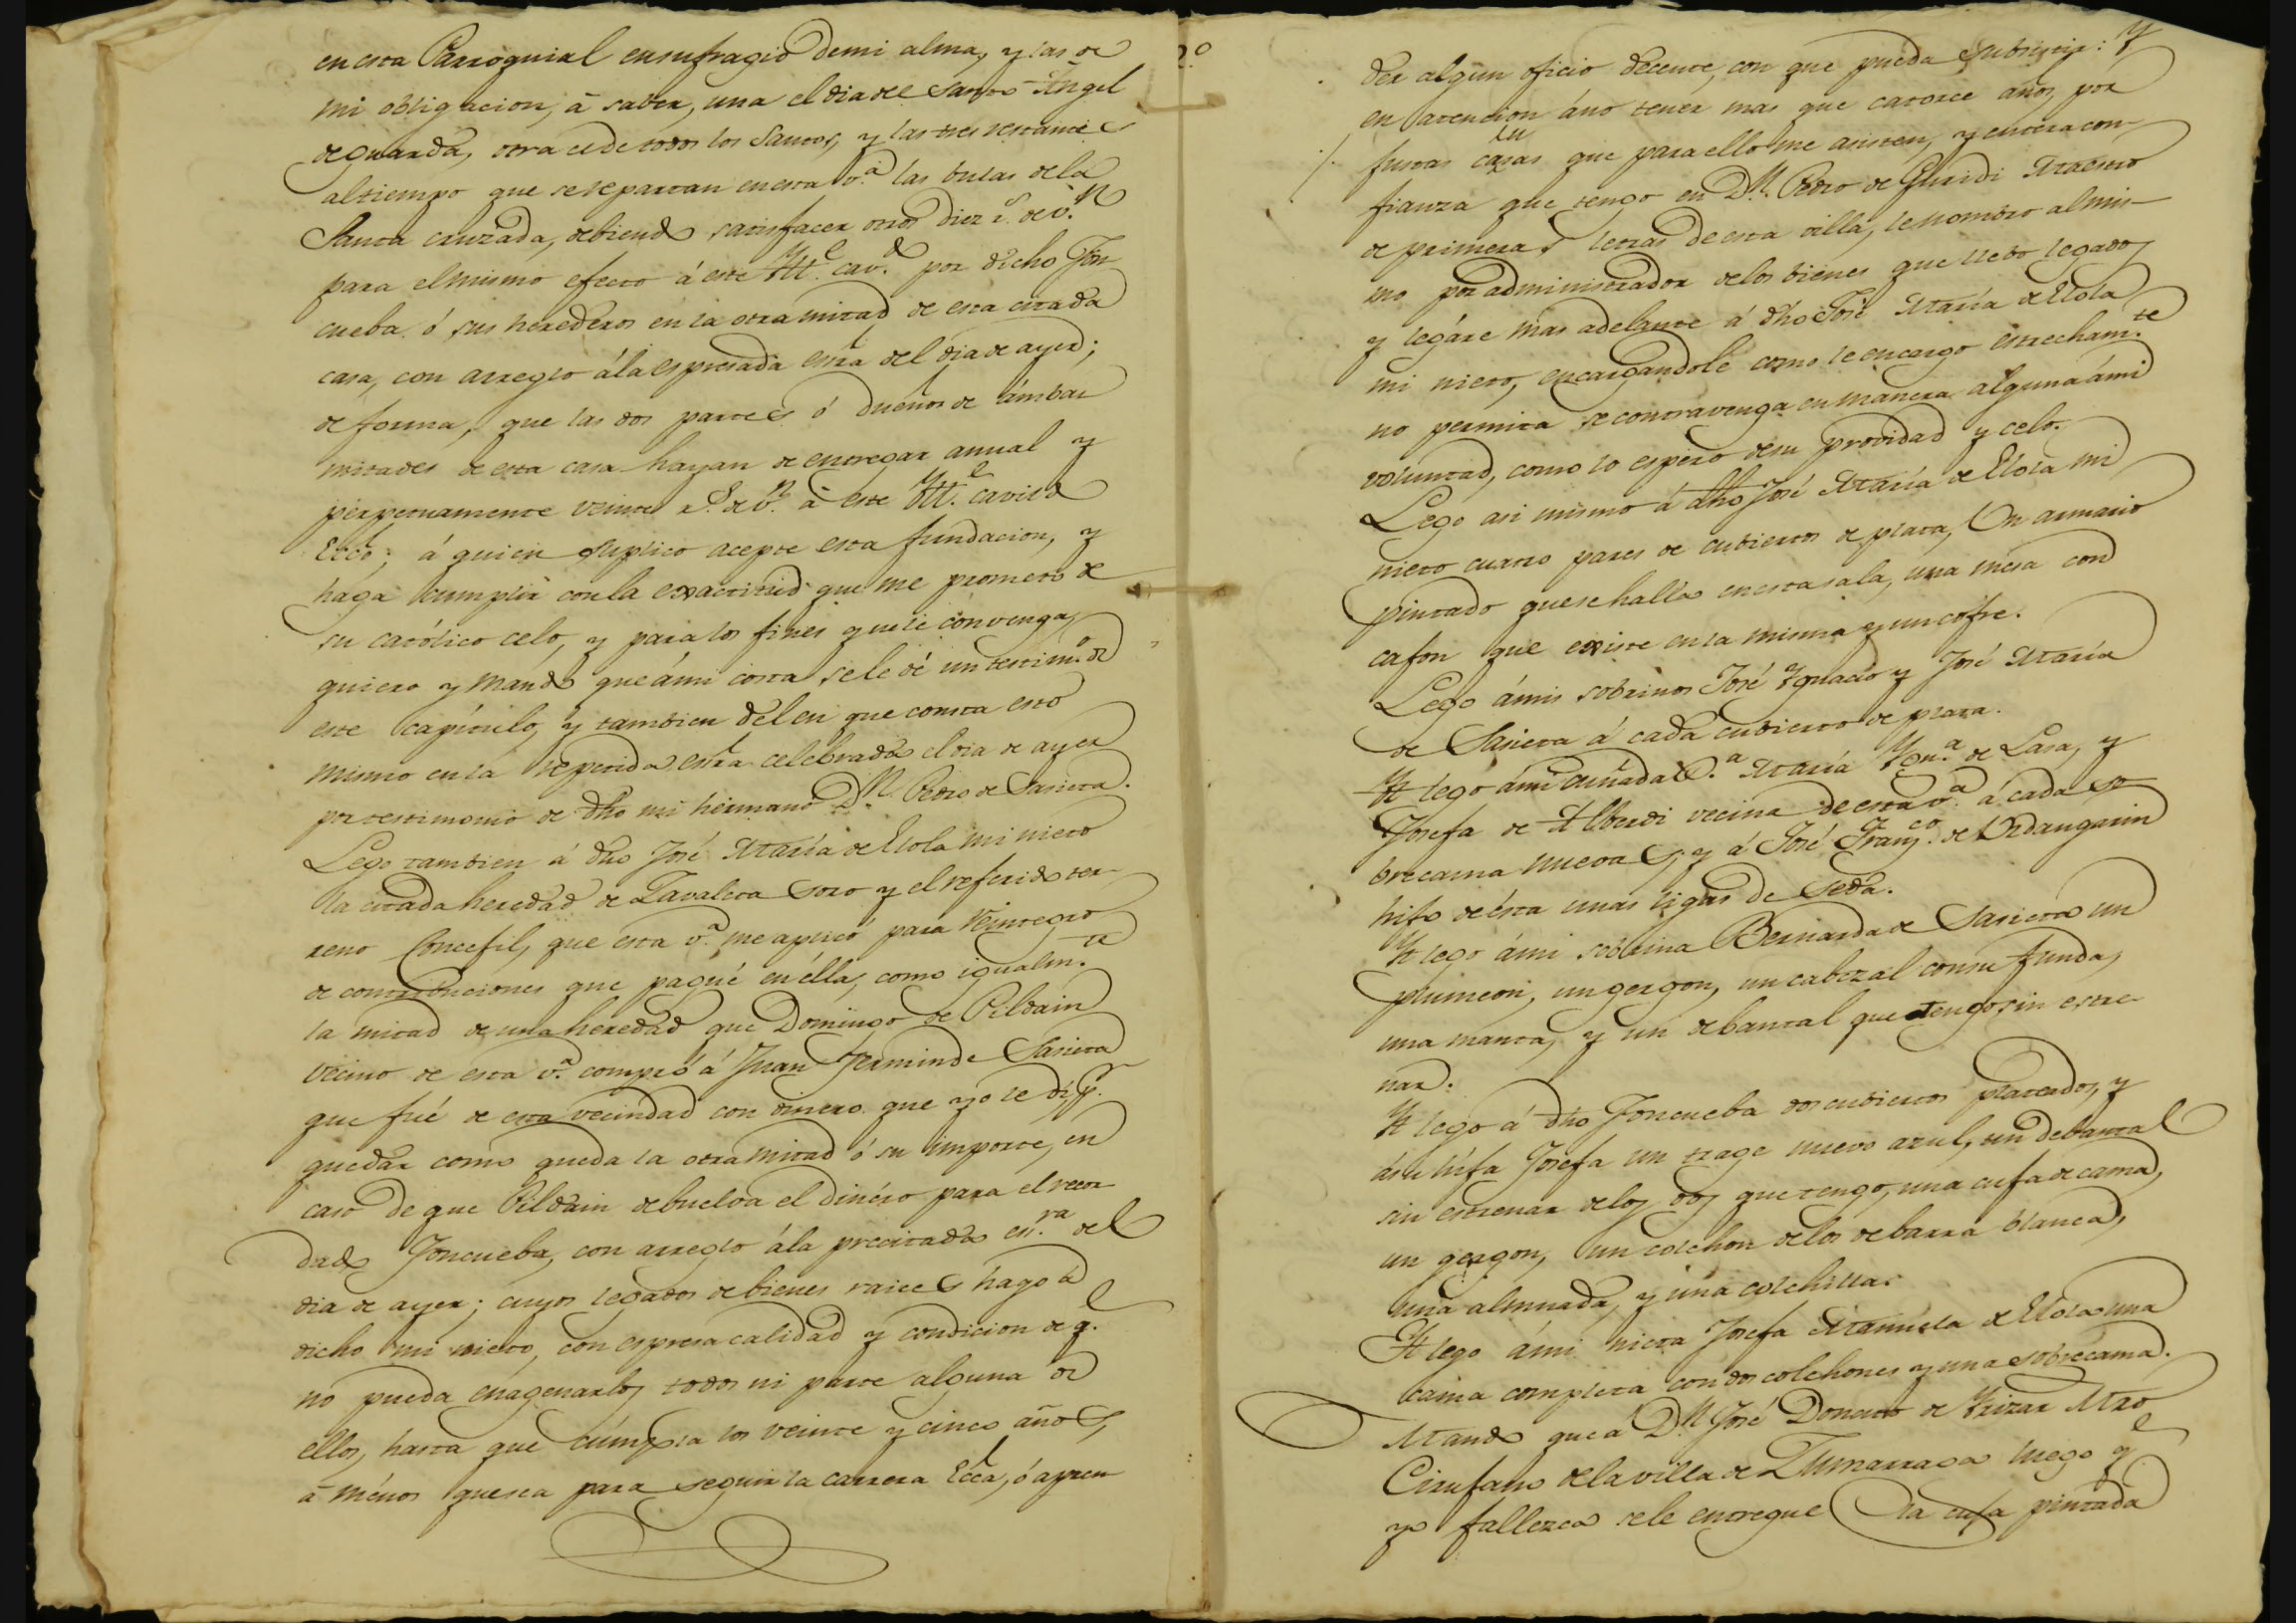 en esta Parroquial en sufragio de mi alma, y las de
mi obligacion, á saber, una el dia del Santo Angel
de guarda, otra el de todos los Santos, y las tres restantes
al tiempo que se repartan en esta v.ª las bulas de la
Santa cruzada, debiendo satisfacer otros diez r.s de v.n
para el mismo efecto á este Itt.e cav.do por dicho Jon
cueba ó sus herederos en la otra mitad de esta citada
casa, con arreglo á la espresada essra del dia de ayer;
de forma, que las dos partes ó dueños de ámbas
mitades de esta casa hayan de entregar anual y
perpetuamente veinte r.s de v.n á este Itt.e cavildo
Ecco, á quien suplico acepte esta fundacion, y
haga cumplir con la exactitud que me prometo de
su católico celo, y para los fines que le convenga,
quiero y mando que á mi costa se le dé un testim.o de
este capítulo, y tambien del en que consta esto
mismo en la repetida essra celebrada el dia de ayer
por testimonio de dho mi hermano D.n Pedro de Sasieta.
Lego tambien á dho José María de Elola mi nieto
la citada heredad de Zavaleta soro y el referido ter-
reno Concejil, que esta v.ª me aplicó para reintegro
de contribuciones que pagué en élla, como igualm.te
la mitad de una heredad que Domingo de Pildain
vecino de esta v.ª compró á Juan Fermin de Sasieta
que fué de esta vecindad con dinero que yo le di, p.r
quedar como queda la otra mitad ó su importe, en
caso de que Pildain debuelva el dinéro para el recor
dado Joncueba, con arreglo á la precitada es.ra del
dia de ayer; cuyos legados de bienes raices hago á
dicho mi nieto, con espresa calidad y condicion de q.e
no pueda enagenarlos todos ni parte alguna de
ellos, hasta que cúmpla los veinte y cinco años,
á ménos que sea para seguir la carrera Ecca, ó apren
2.º
der algun oficio decente, con que pueda subsistir: Y
en atencion á no tener mas que catorce años, por
justas causas que para ello me asisten, y entera con-
fianza que tengo en D.n Pedro de Guridi Maestro
de primeras letras de esta villa, le nombro al mis-
mo por administrador de los bienes que llebo legados,
y legáre mas adelante á dho José María de Elola
mi nieto, encargandole como le encargo estrecham.te
no permita se contravenga en manera alguna á mi
voluntad, como lo espero de su providad y celo.
Lego asi mismo á dho José María de Elola mi
nieto cuatro pares de cubiertos de plata, Un armario
pintado que se halla en esta sala, una mesa con
cajon que existe en la misma y un cofre.
Lego á mis sobrinos José Ygnacio y José María
de Sasieta á cada cubierto de plata.
It lego á mi cuñada D.ª María Ygn.ª de Lasa, y
Josefa de Alberdi vecina de esta v.ª á cada so-
brecama nuevas, y á José Fran.co de Urdangarin
hijo de ésta unas ligas de seda.
It lego á mi sobrina Bernarda de Sasieta un
plumeon, un gergon, un cabezal con su funda,
una manta, y un debantal que tengo sin estre-
nar.
It lego á dho Joncueba dos cubiertos plateados, y
á su hija Josefa un trage nuevo azul, un debantal
sin estrenar de los dos que tengo, una cuja de cama,
un gergon, un colchon de los de barra blanca,
una almuada, y una colchilla.
It lego á mi nieta Josefa Manuela de Elola una
cama completa con dos colchones y una sobrecama.
Mando que á D.n José Donato de Yrizar Mro
Cirujano de la villa de Zumarraga luego q.e
yo fallezca se le entregue la cuja pintada